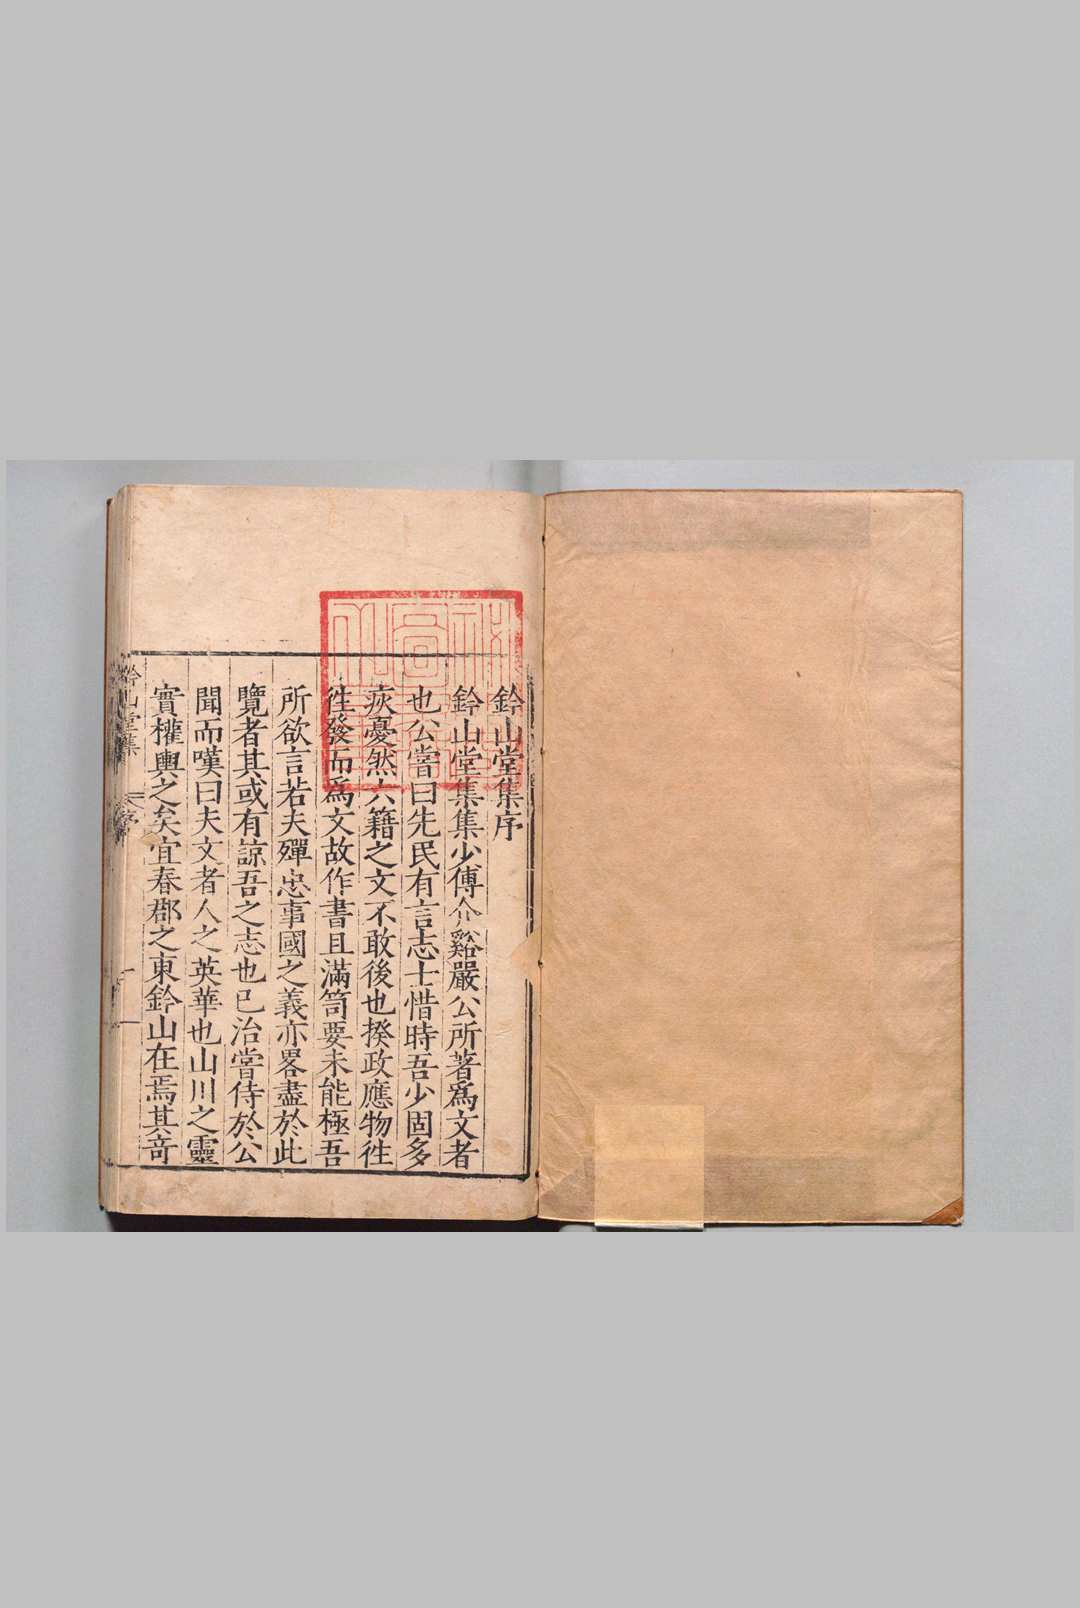 鈐山堂集序
鈐山堂集集少傅介谿嚴公所著爲文者
也公嘗曰先民有言志士惜時吾少固多
疾憂然六籍之文不敢後也揆政應物徃
徃發而爲文故作書且滿笥要未能極吾
所欲言若夫殫忠事國之義亦畧盡於此
覽者其或有諒吾之志也已治嘗侍於公
聞而嘆曰夫文者人之英華也山川之靈
實權輿之矣宜春郡之東鈐山在焉其竒
鈐山堂集 序